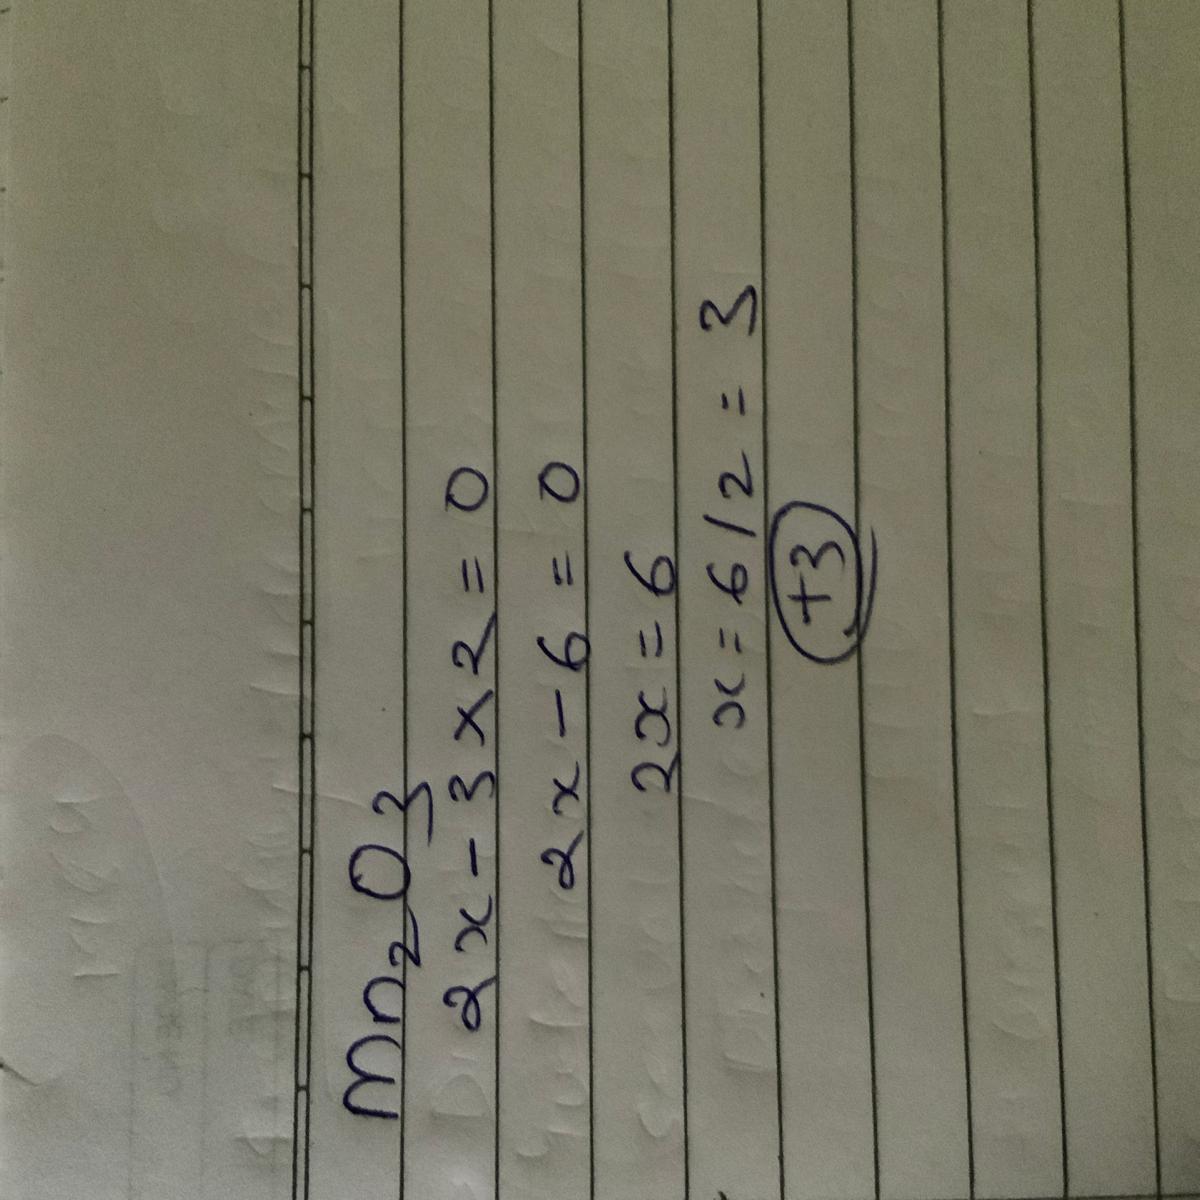 Mn₂O₃
2x - 3 x 2 = 0
2x - 6 = 0
2x = 6
x = 6/2 = 3
+3